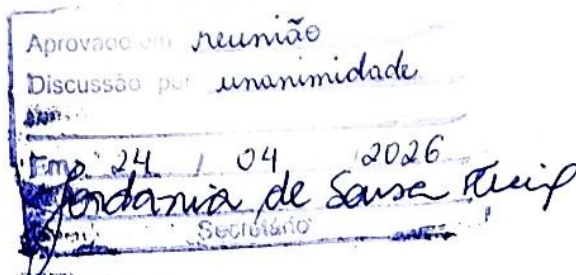 Aprovado em reunião
Discussão por unanimidade
Em 24 / 04 2026
Jordania de Sousa
Secretário